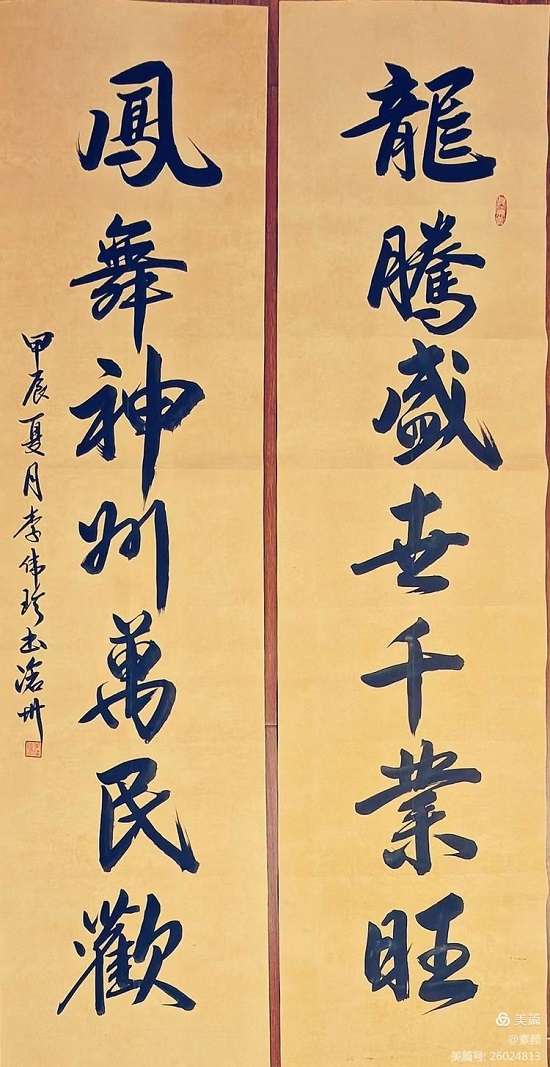 龍騰盛世千業旺
鳳舞神州萬民歡
甲辰夏月李伟珍书滄州
美篇
@素颜
美篇号: 26024813